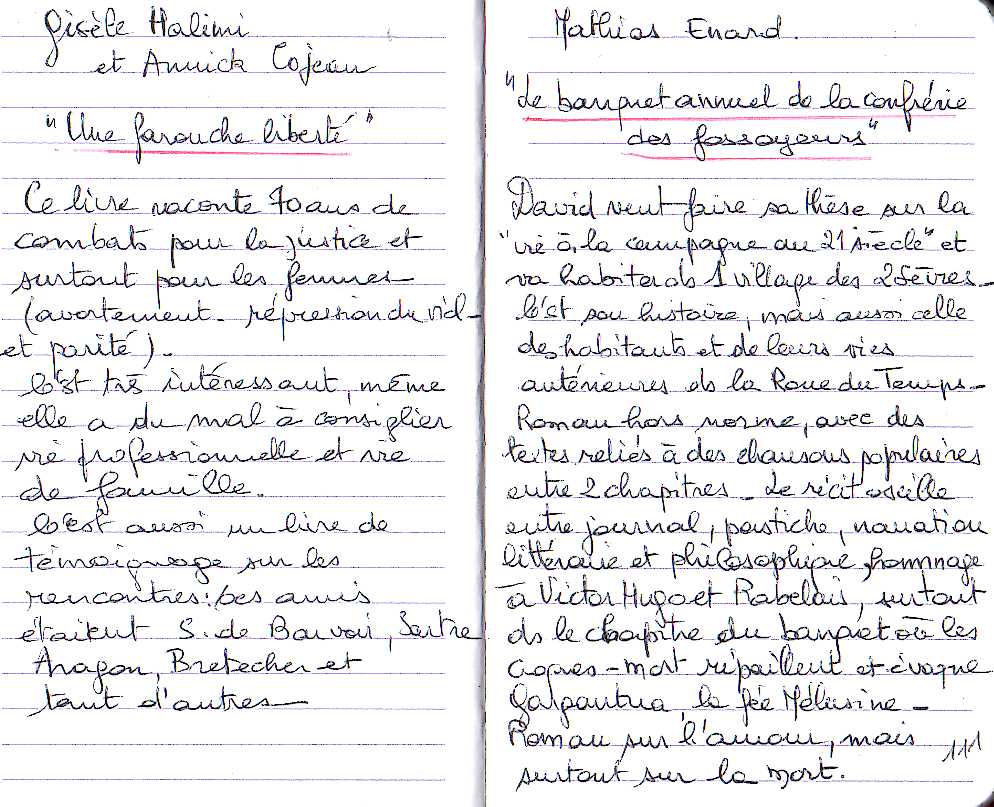 Gisèle Halimi
et Annick Cojean
"Une farouche liberté"
Ce livre raconte 70 ans de
combats pour la justice et
surtout pour les femmes
(avortement - répression du viol -
et parité).
C'est très intéressant, même
elle a du mal à consiglier
vie professionnelle et vie
de famille.
C'est aussi un livre de
témoignage sur les
rencontres : ses amis
étaient S. de Bauvoir, Sartre
Aragon, Bretecher et
tant d'autres -
Mathias Enard.
"Le banquet annuel de la confrérie
des fossoyeurs"
David veut faire sa thèse sur la
"vie à la campagne au 21 siècle" et
va habiter ds 1 village des 2 Sèvres -
C'est son histoire, mais aussi celle
des habitants et de leurs vies
antérieures ds la Roue du Temps -
Roman hors norme, avec des
textes reliés à des chansons populaires
entre 2 chapitres - Le récit oscille
entre journal, pastiche, narration
littéraire et philosophique, hommage
à Victor Hugo et Rabelais, surtout
ds le chapitre du banquet où les
croques-mort ripaillent et évoque
Gargantua, la fée Mélusine -
Roman sur l'amour, mais
surtout sur la mort.
111